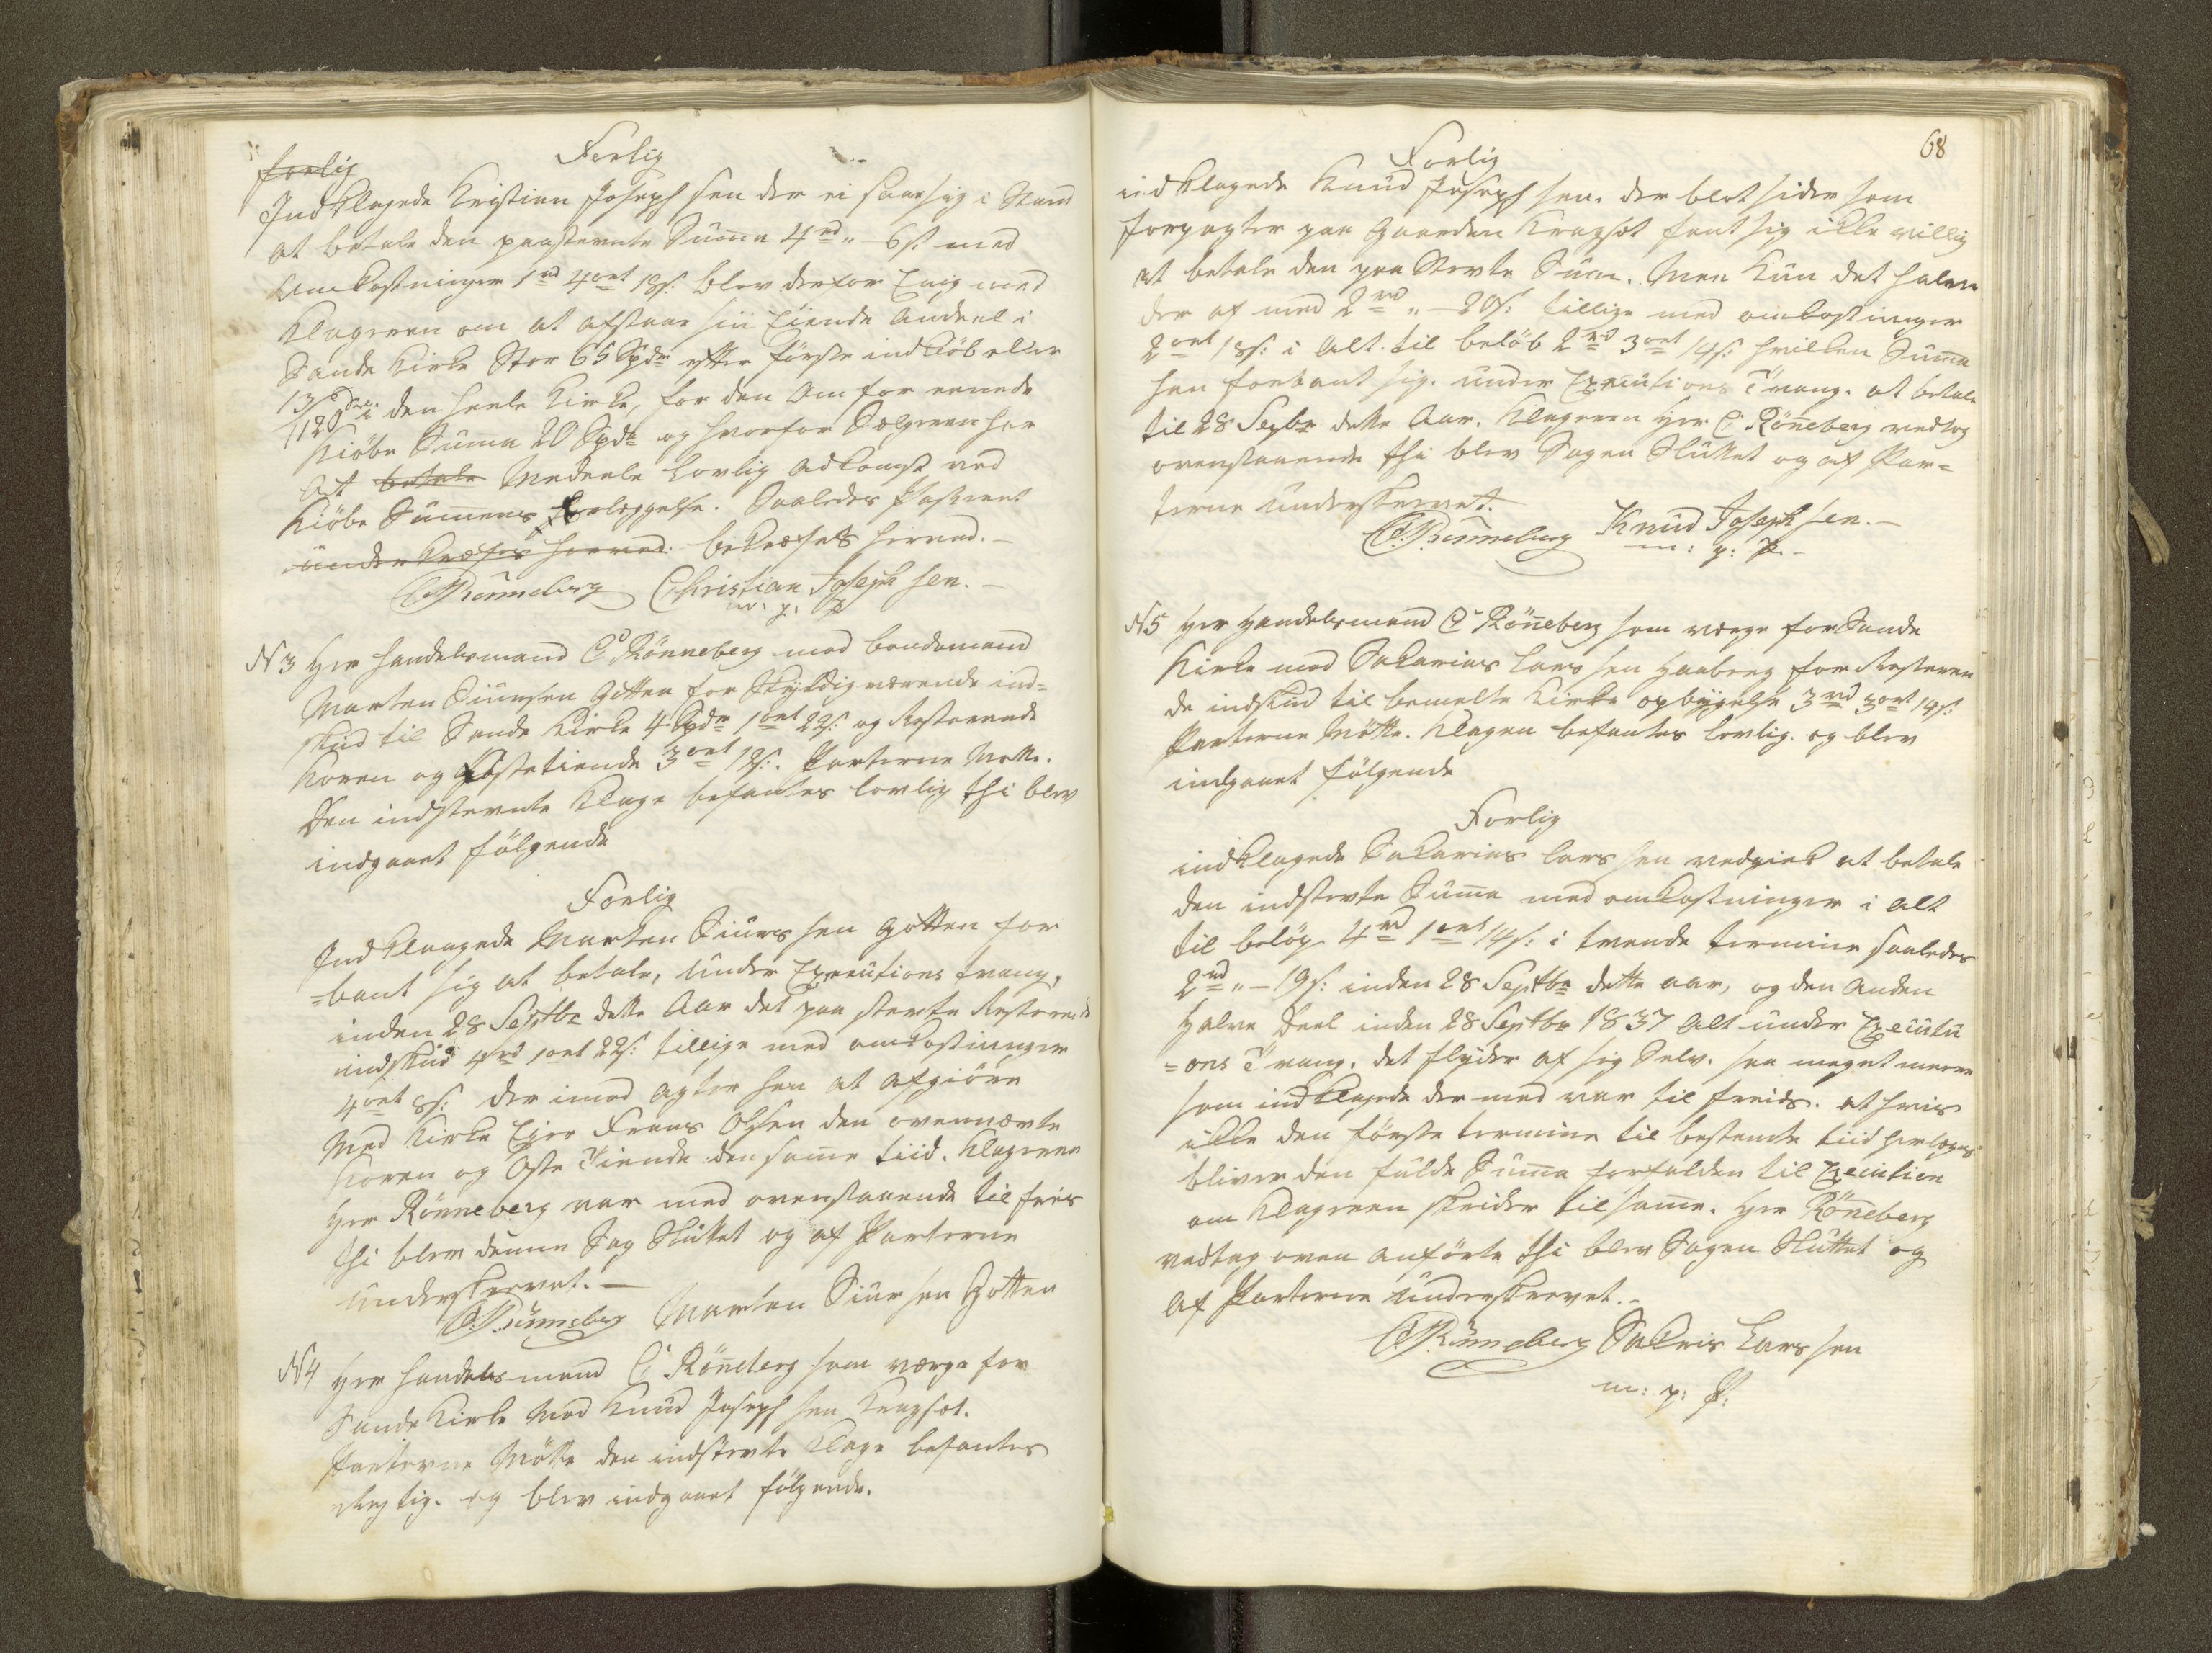 Forlig
forlig
Indklagede Kristian Joseph sen der ei saae sig i Stand
at betale den paastevnte Summa 4rd „ - 6s: med
Omkostninger 1rd 4ort 18s: blev derfor Enig med
Klageren om at afstaae sin Eiende Andeel i
Sande Kirke Stor 65 Spdr efter første indkiøb eller
13/1120 Dele i den heele Kirke, for den Om for eenede
Kiöbe Summa 20 Spdr og hvorfor Selgeren har
At betale Meddeele lovlig Adkomst ved
Kiöbe Summens Erleggelse. Saaledes Passeret
under kræfes herved. bekræftes herved. –
C Rönneberg Christian Joseph sen. –
m. p. P
N3 Herr Handelsmand C Rönneberg mod bondemand
Marten Siursen Gotten for Skyldig værende ind=
skud til Sande Kirke 4 Spdr 1ort 22s: og Resterende
Koren og Ostetiende 3ort 18s:. Parterne Møtte.
Den indstevnte Klage befantes lovlig thi blev
indgaaet følgende
Forlig
Indklaagede Marten Siurs sen Gotten for
=bant sig at betale, under Executions tvang,
inden 28 Septbr dette Aar det paa stevte Resterende
indskud 4rd 1ort 22s: tillige med omkostninger
4ort 8s: der imod agter han at afgiöre
Med Kirke Ejer Frans Olsen den ovennævte
Koren og Oste Tiende den samme tiid. Klageren
Herr Rönneberg var med ovenstaaende til freds
thi blev denne Sag Sluttet og af Parterne
Underskrevet. –
C. Rönneberg Marten Siursen Gotten
N4 Herr Handelsmand C Rönneberg som værge for
Sande Kirke Mod Knud Joseph sen Kragset.
Parterne Møtte den indstevte Klage befantes
Rigtig. og blev indgaaet følgende.
68
Forlig
indklagede Knud Joseph sen. der blot sider som
forpagter paa Gaarden Kragset fant sig ikke villig
at betale den paa Stevte Sum. Men kun det halve
der af med 2rd „ – 20s: tillige med omkostninger
2ort 18s: i Alt til beløb 2rd 3ort 14s: hvilken Summa
han forbant sig. under Executions Tvang. at betale
til 28 Sepbr dette Aar. Klageren Herr C Rönneberg vedtog
ovenstaaende thi blev Sagen Sluttet og af Par=
terne Underskrevet.
C. Rönneberg Knud Joseph sen. –
m: p: P. –
N5 Herr Handelsmand C Rönneberg som værge for Sande
Kirke mod Sakarias Lars sen Haaberg for Resteren
de indskud til bemelte Kirke opbygelse 3rd 3ort 14s:
Parterne Møtte. Klagen befantes lovlig. og blev
indgaaet følgende
Forlig
indklagede Sakarias Lars sen vedgiek at betale
den indstevte Summa med omkostninger i Alt
til beløp 4rd 1ort 14s: i tvende termine saaledes
2rd „ – 19s: inden 28 Septbr dette aar, og den Anden
Halve Deel inden 28 Septbr 1837 Alt under Executi
=ons Tvang. det flyder af sig Selv. saa meget mere
som indklagede der med var til freids. at hvis
ikke den første termine til bestemte tiid erlægges
bliver den fulde Summa forfalden til Execution
om Klageren skrider til samme. Herr Rönneberg
vedtog oven anførte thi blev Sagen Sluttet og
Af Parterne Underskrevet. –
C. Rönneberg Sakris Lars sen
m: p: P: